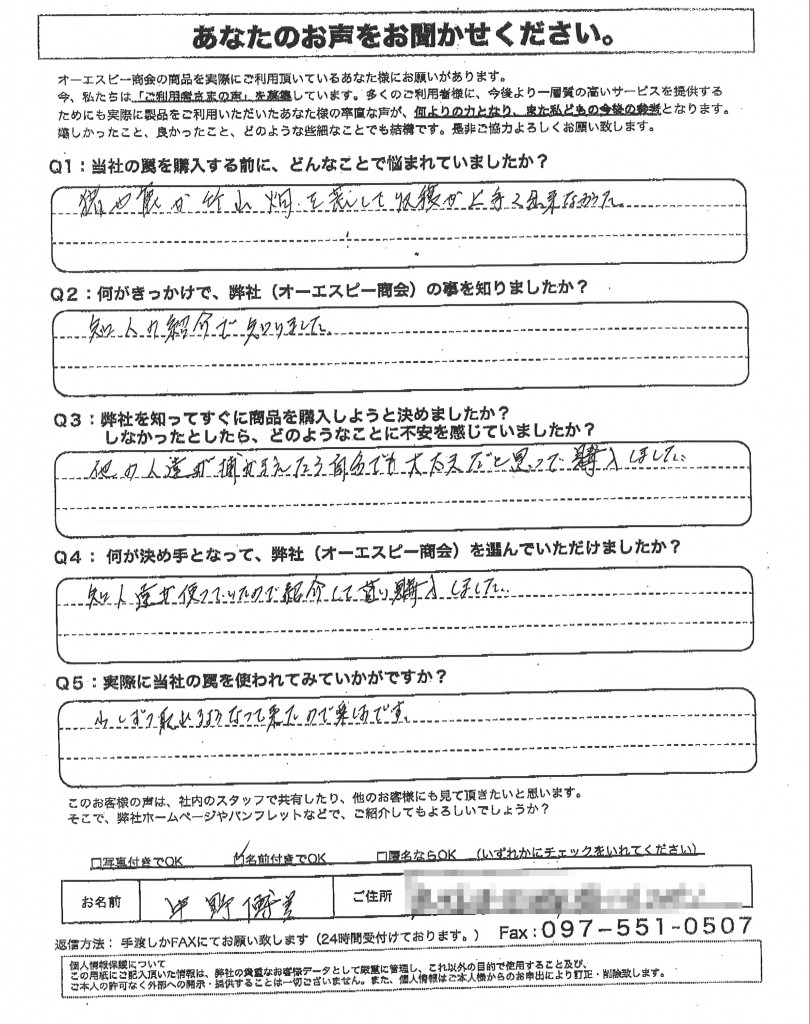 あなたのお声をお聞かせください。
オーエスピー商会の商品を実際にご利用頂いているあなた様にお願いがあります。
今、私たちは「ご利用者さまの声」を募集しています。多くのご利用者様に、今後より一層質の高いサービスを提供する
ためにも実際に製品をご利用いただいたあなた様の率直な声が、何よりの力となり、また私どもの今後の参考となります。
嬉しかったこと、良かったこと、どのような些細なことでも結構です。是非ご協力よろしくお願い致します。
Q1：当社の罠を購入する前に、どんなことで悩まれていましたか？
猪や が竹山 畑を荒して収穫が上手く出来なかった。
Q2：何がきっかけで、弊社（オーエスピー商会）の事を知りましたか？
知人の紹介で知りました。
Q3：弊社を知ってすぐに商品を購入しようと決めましたか？
しなかったとしたら、どのようなことに不安を感じていましたか？
他の人達が捕かまえたら自分でも大丈夫だと思って購入しました。
Q4： 何が決め手となって、弊社（オーエスピー商会）を選んでいただけましたか？
知人達が使っていたので紹介して貰い購入しました。
Q5：実際に当社の罠を使われてみていかがですか？
少しずつ取れるようなって来たので楽しみです。
このお客様の声は、社内のスタッフで共有したり、他のお客様にも見て頂きたいと思います。
そこで、弊社ホームページやパンフレットなどで、ご紹介してもよろしいでしょうか？
□写真付きでOK ☑名前付きでOK □匿名ならOK （いずれかにチェックをいれてください）
お名前 中野 ご住所
返信方法： 手渡しかFAXにてお願い致します（24時間受付けております。） Fax：097-551-0507
個人情報保護について
この用紙にご記入頂いた情報は、弊社の貴重なお客様データとして厳重に管理し、これ以外の目的で使用すること及び、
ご本人の許可なく外部への開示・提供することは一切ございません。また、個人情報はご本人様からのお申出により訂正・削除致します。